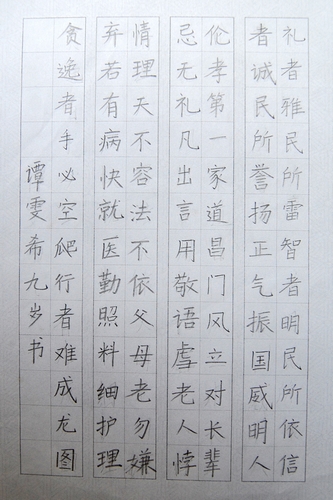 礼者雅民所雷智者明民所依信
者诚民所誉扬正气振国威明人
伦孝第一家道昌门风立对长辈
忌无礼凡出言用敬语虐老人悖
情理天不容法不依父母老勿嫌
弃若有病快就医勤照料细护理
贪逸者手必空爬行者难成龙图
谭雯希九岁书